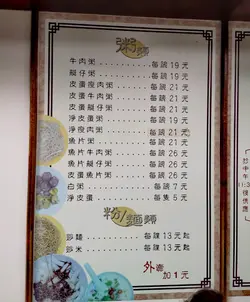 粥類
牛肉粥 每碗 19 元
艇仔粥 每碗 19 元
皮蛋瘦肉粥 每碗 21 元
皮蛋牛肉粥 每碗 21 元
皮蛋艇仔粥 每碗 21 元
淨皮蛋粥 每碗 21 元
淨瘦肉粥 每碗 21 元
魚片粥 每碗 21 元
魚片牛肉粥 每碗 26 元
魚片艇仔粥 每碗 26 元
皮蛋魚片粥 每碗 26 元
白粥 每碗 7 元
淨皮蛋 每隻 5 元
粉/麵類
炒麵 每碟 13 元起
炒米 每碟 13 元起
外賣
加 1 元